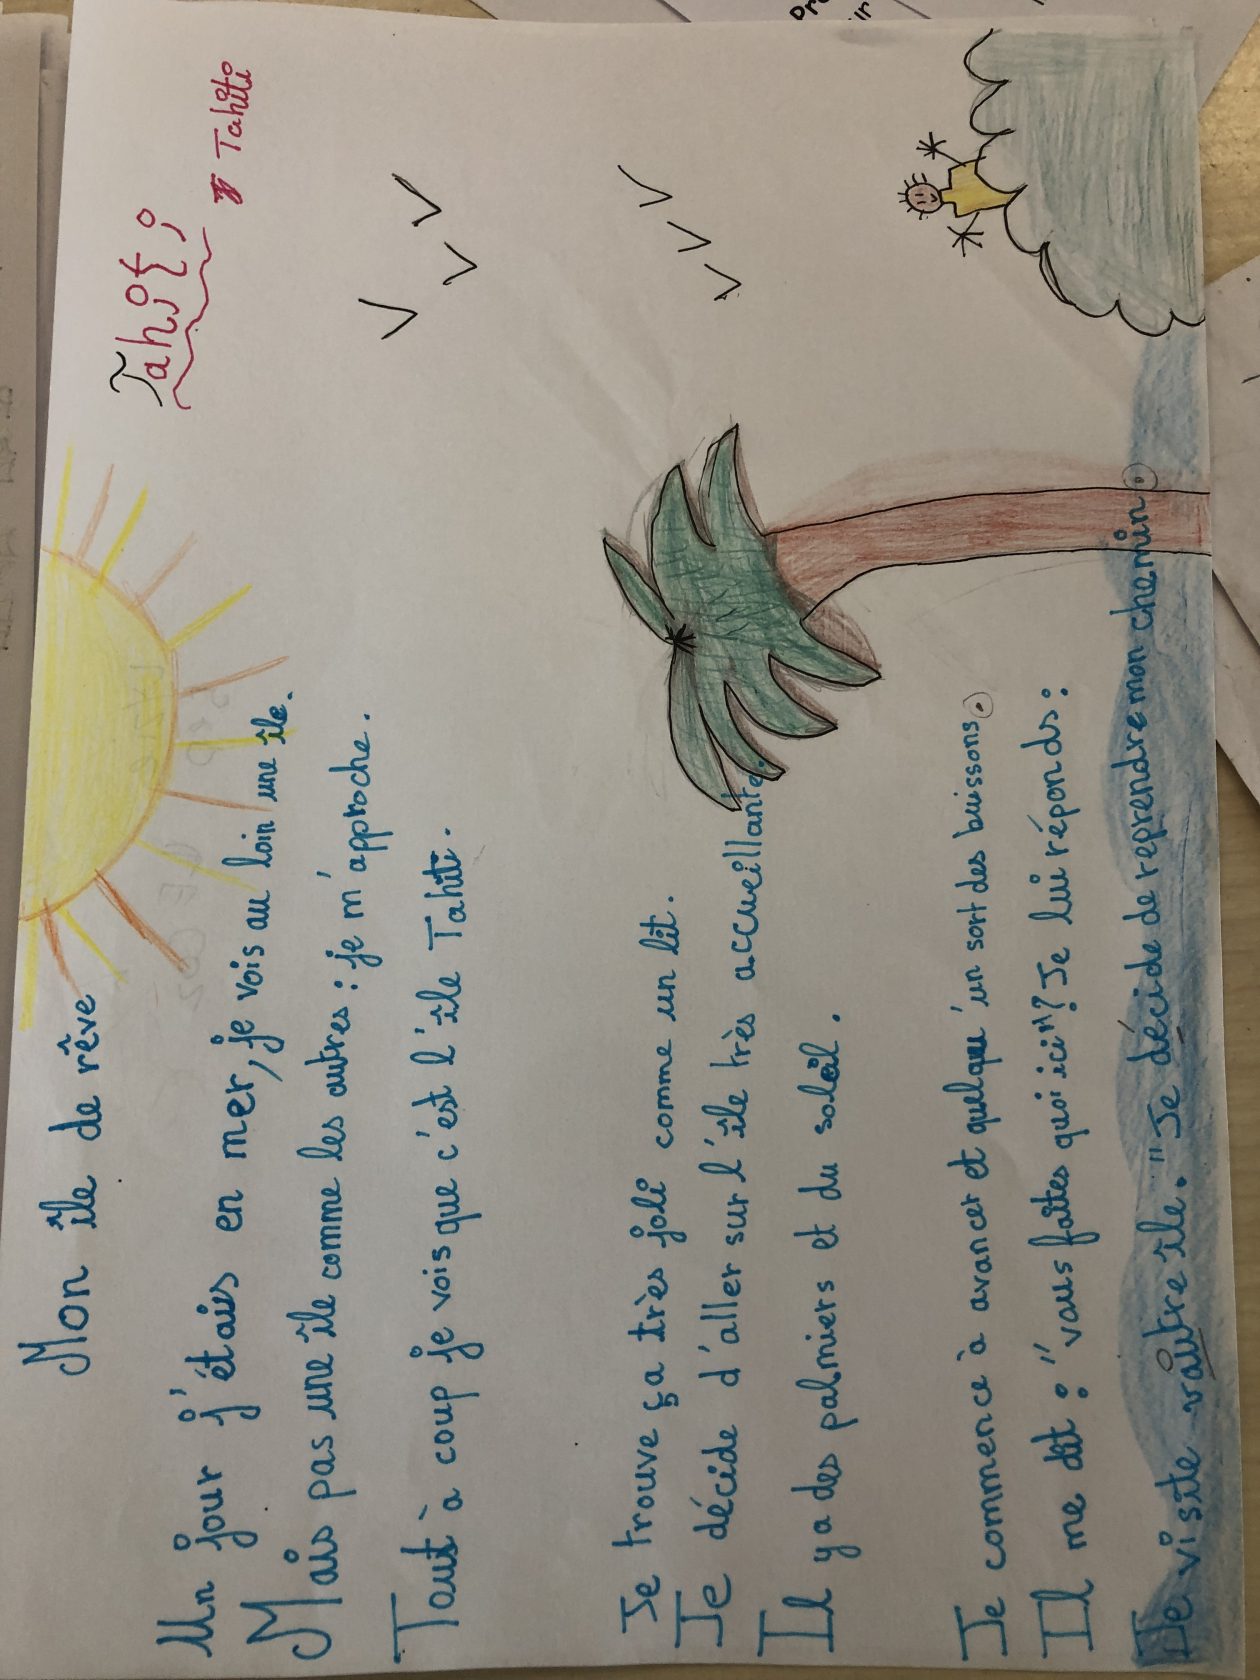 Mon île de rêve
Tahiti
Tahiti
Un jour j'étais en mer, je vois au loin une île.
Mais pas une île comme les autres : je m'approche.
Tout à coup je vois que c'est l'île Tahiti.
Je trouve ça très joli comme un lit.
Je décide d'aller sur l'île très accueillante.
Il y a des palmiers et du soleil.
Je commence à avancer et quelqu'un sort des buissons.
Il me dit : "vous faites quoi ici"? Je lui réponds :
Je visite vautre île." Je décide de reprendre mon chemin.